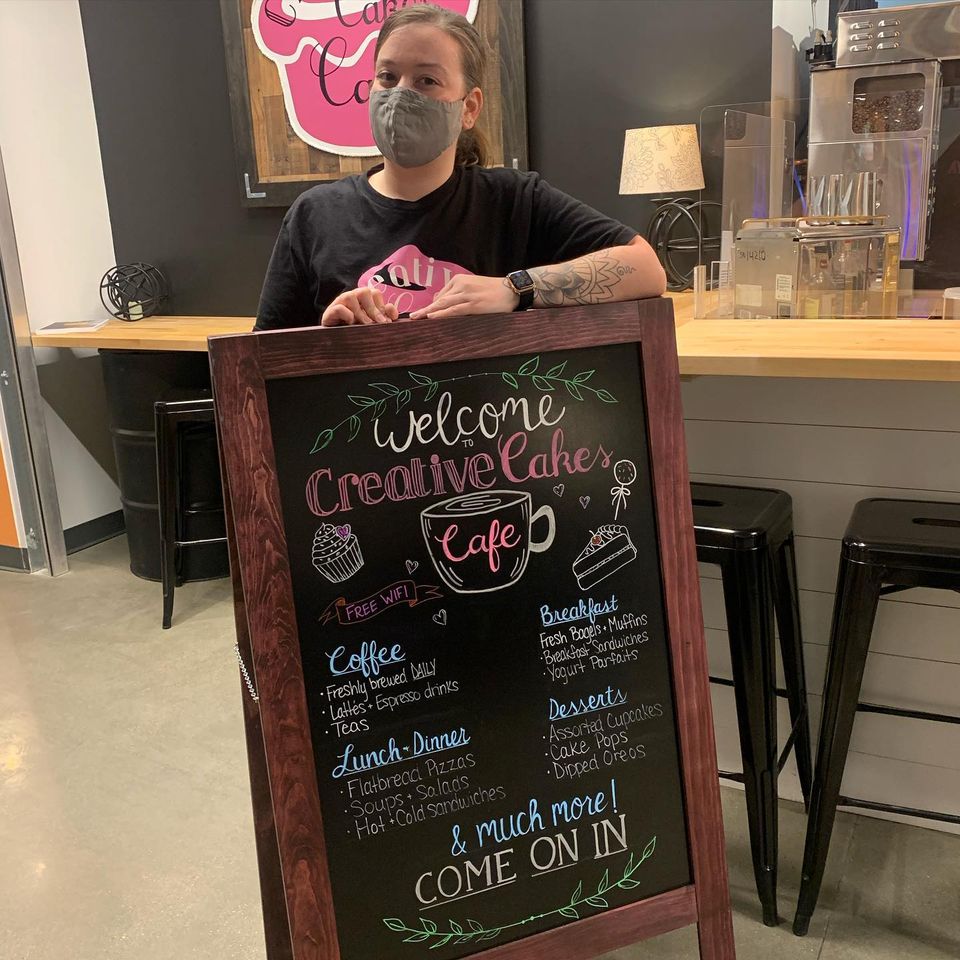 Cakes
Ca
eati
Welcome
TO
Creative Cakes
Cafe
FREE WIFI
Coffee
· Freshly brewed DAILY
· Lattes + Espresso drinks
· Teas
Lunch + Dinner
· Flatbread Pizzas
· Soups + Salads
· Hot + Cold sandwiches
Breakfast
Fresh Bagels + Muffins
· Breakfast Sandwiches
· Yogurt Parfaits
Desserts
· Assorted Cupcakes
· Cake Pops
· Dipped Oreos
& much more!
COME ON IN